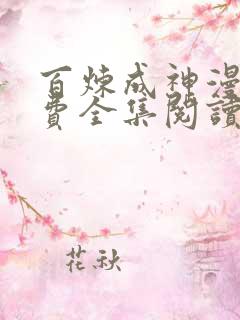 百炼成神漫
费全集閱讀
花秋